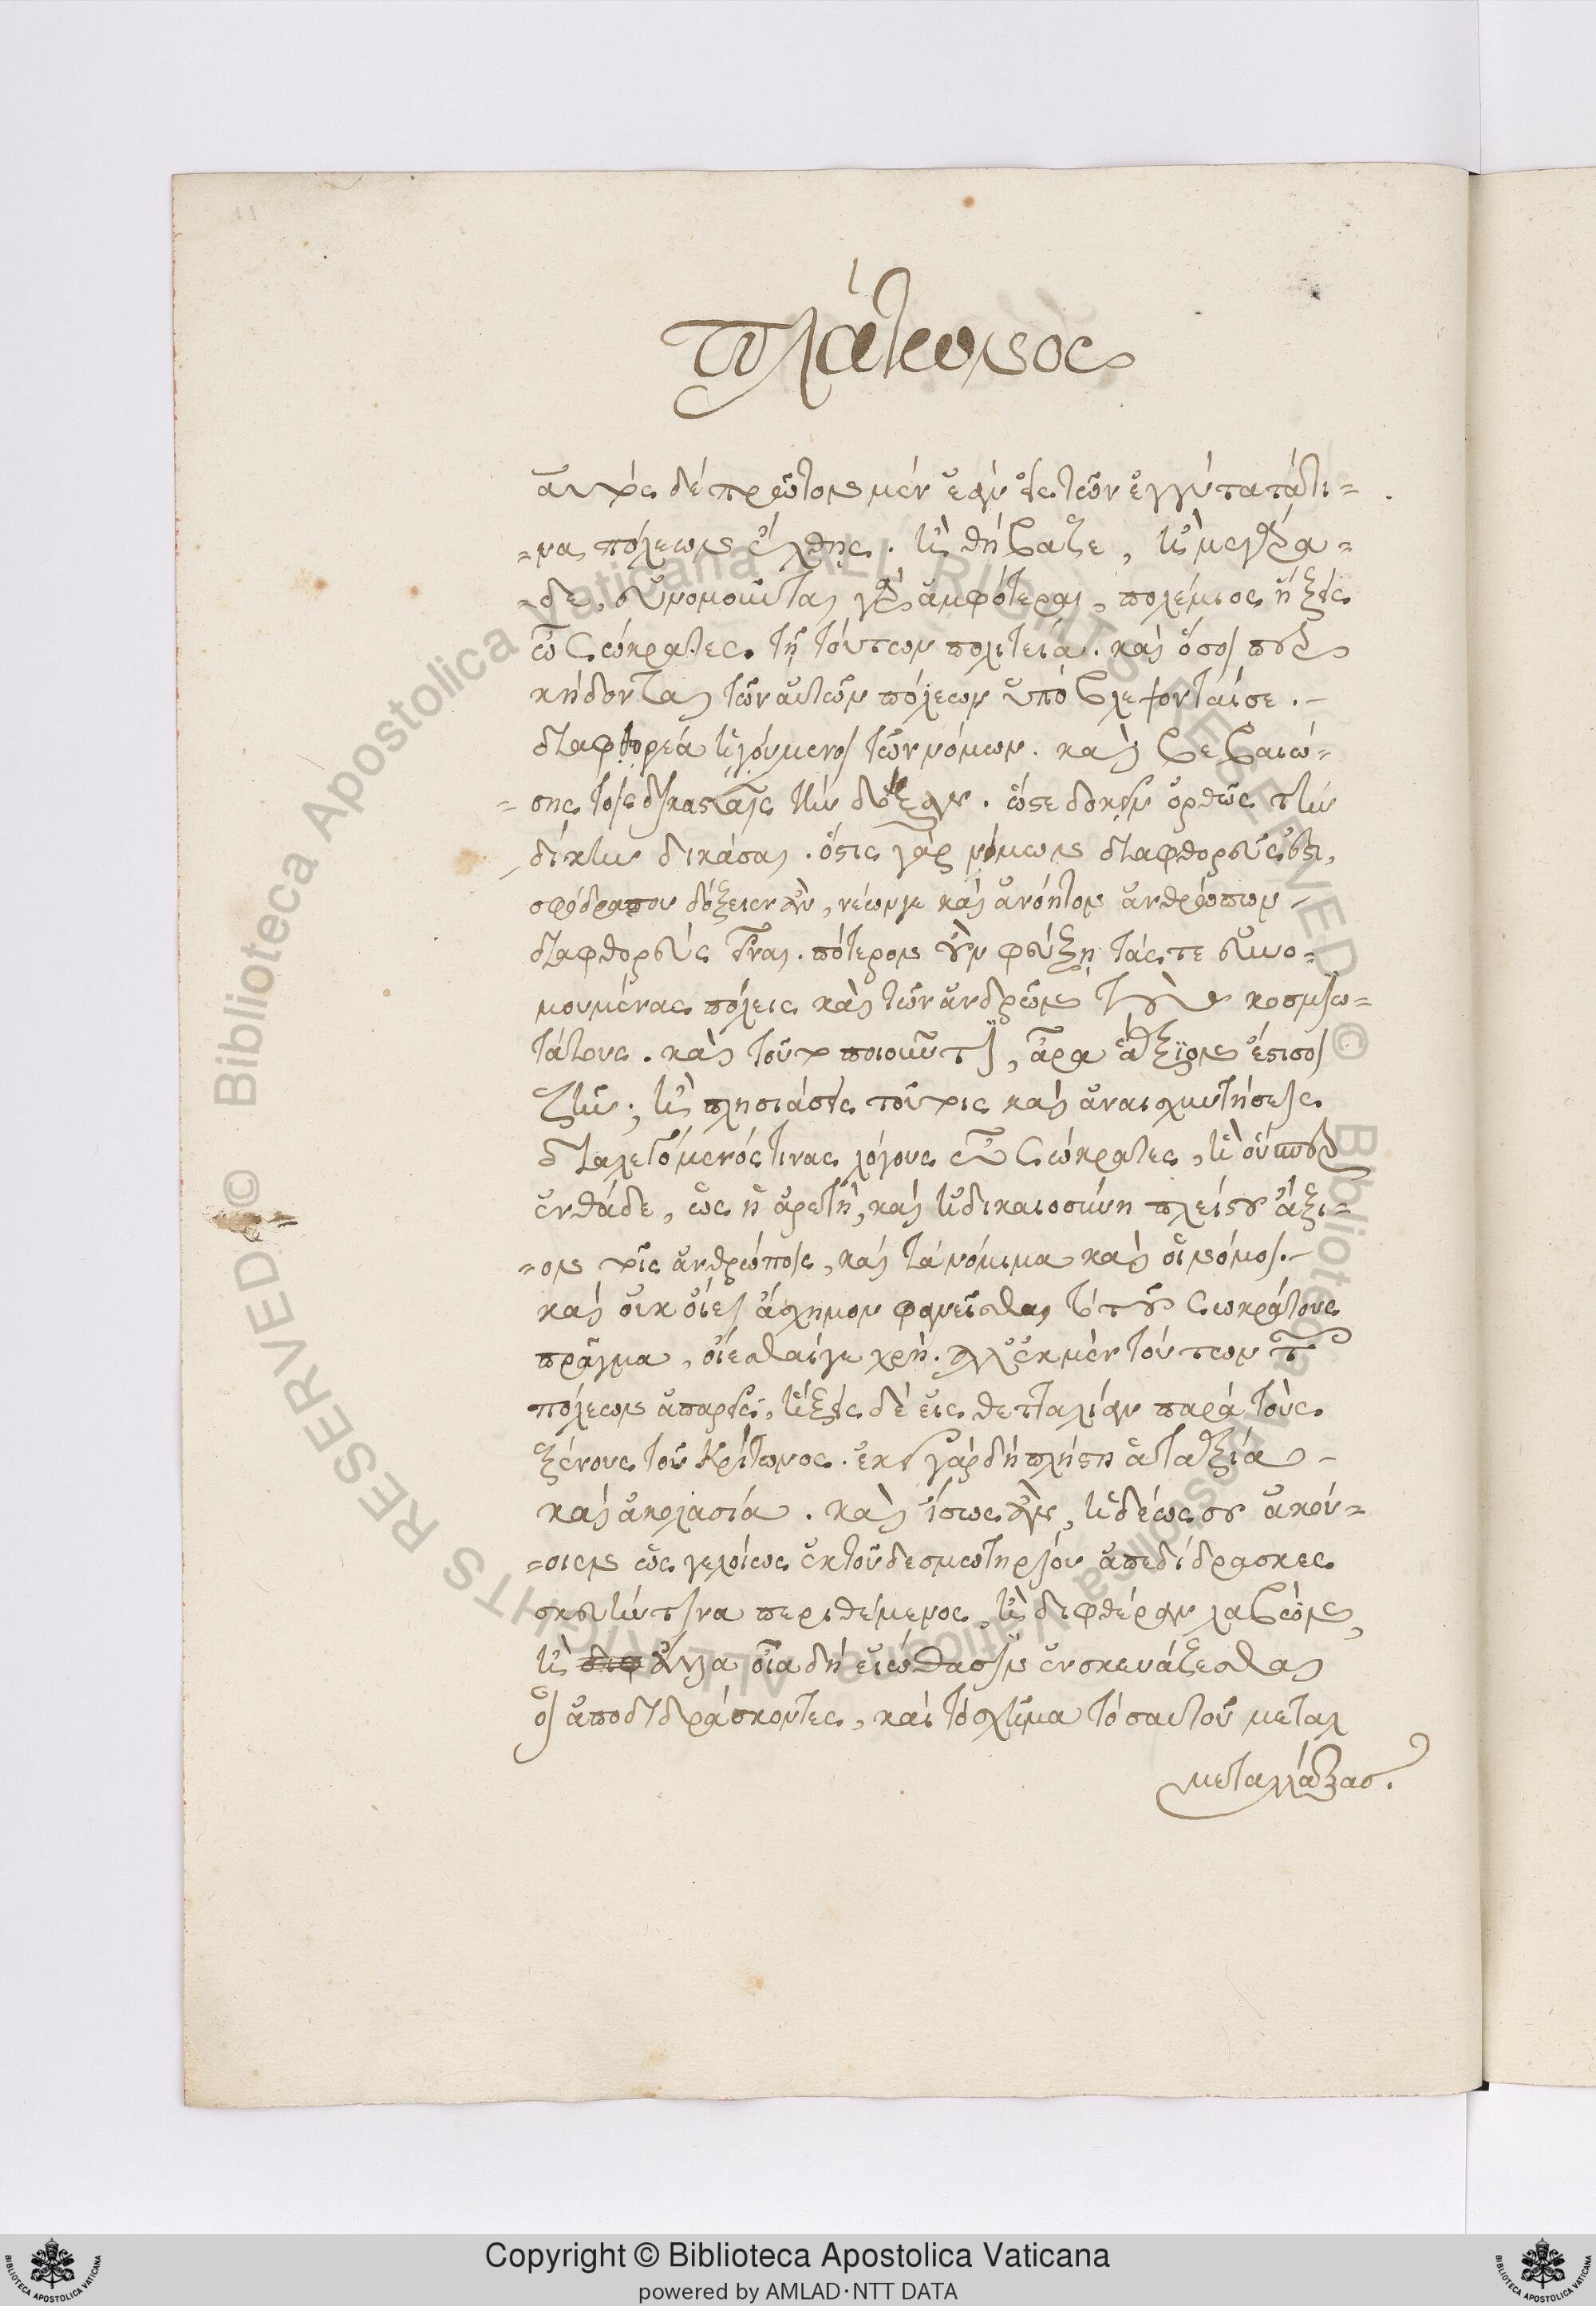 πλάτωνος
αυτὸς δὲ πρῶτον μὲν ἐὰν εἰς τῶν ἐγγύτατά τι-
-να πόλεων ἔλθῃς. ἢ θήβαζε, ἢ μέγαρά-
-δε, εὐνομοῦνται γὰρ ἀμφότεραι, πολέμιος ἥξεις
ὦ Σώκρατες. τῇ τούτων πολιτείᾳ. καὶ ὅσοι περ
κήδονται τῶν αὑτῶν πόλεων ὑποβλέψονταί σε.
διαφθορέα ἡγούμενοι τῶν νόμων. καὶ βεβαιώ-
-σης τοῖς δικασταῖς τὴν δόξαν. ὥστε δοκεῖν ὀρθῶς τὴν
δίκην δικάσαι. ὅστις γὰρ νόμων διαφθορεύς ἐστι,
σφόδρα που δόξειεν ἂν, νέων γε καὶ ἀνοήτων ἀνθρώπων
διαφθορεὺς εἶναι. πότερον οὖν φεύξῃ τάς τε εὐνο-
μουμένας πόλεις καὶ τῶν ἀνδρῶν τοὺς κοσμιω-
τάτους. καὶ τοῦτο ποιοῦντι, ἆρα ἄξιον ἔσται σοι
ζῆν; ἢ πλησιάσεις τούτοις καὶ ἀναισχυντήσεις
διαλεγόμενός τινας λόγους ὦ Σώκρατες, ἢ οὕσπερ
ἐνθάδε, ὡς ἡ ἀρετὴ, καὶ ἡ δικαιοσύνη πλείστου ἄξι-
-ον τοῖς ἀνθρώποις, καὶ τὰ νόμιμα καὶ οἱ νόμοι.
καὶ οὐκ οἴει ἄσχημον φανεῖσθαι τὸ τοῦ Σωκράτους
πρᾶγμα, οἴεσθαί γε χρή. ἀλλ' ἐκ μὲν τούτων τῶν
πόλεων ἀπαρεῖς, ἥξεις δὲ εἰς θετταλίαν παρὰ τοὺς
ξένους τοῦ Κρίτωνος. ἐκεῖ γὰρ δὴ πλείστη ἀταξία
καὶ ἀκολασία. καὶ ἴσως ἂν, ἡδέως σου ἀκού-
-οιεν ὡς γελοίως ἐκ τοῦ δεσμωτηρίου ἀπεδίδρασκες
σκευήν τινα περιθέμενος, ἢ διφθέραν λαβὼν,
ἢ διφ ἄλλα οἷα δὴ εἰώθασιν ἐνσκευάζεσθαι
οἱ ἀποδιδράσκοντες, καὶ τὸ σχῆμα τὸ σαυτοῦ μεταλ
μεταλλάξας.
Copyright © Biblioteca Apostolica Vaticana
powered by AMLAD·NTT DATA